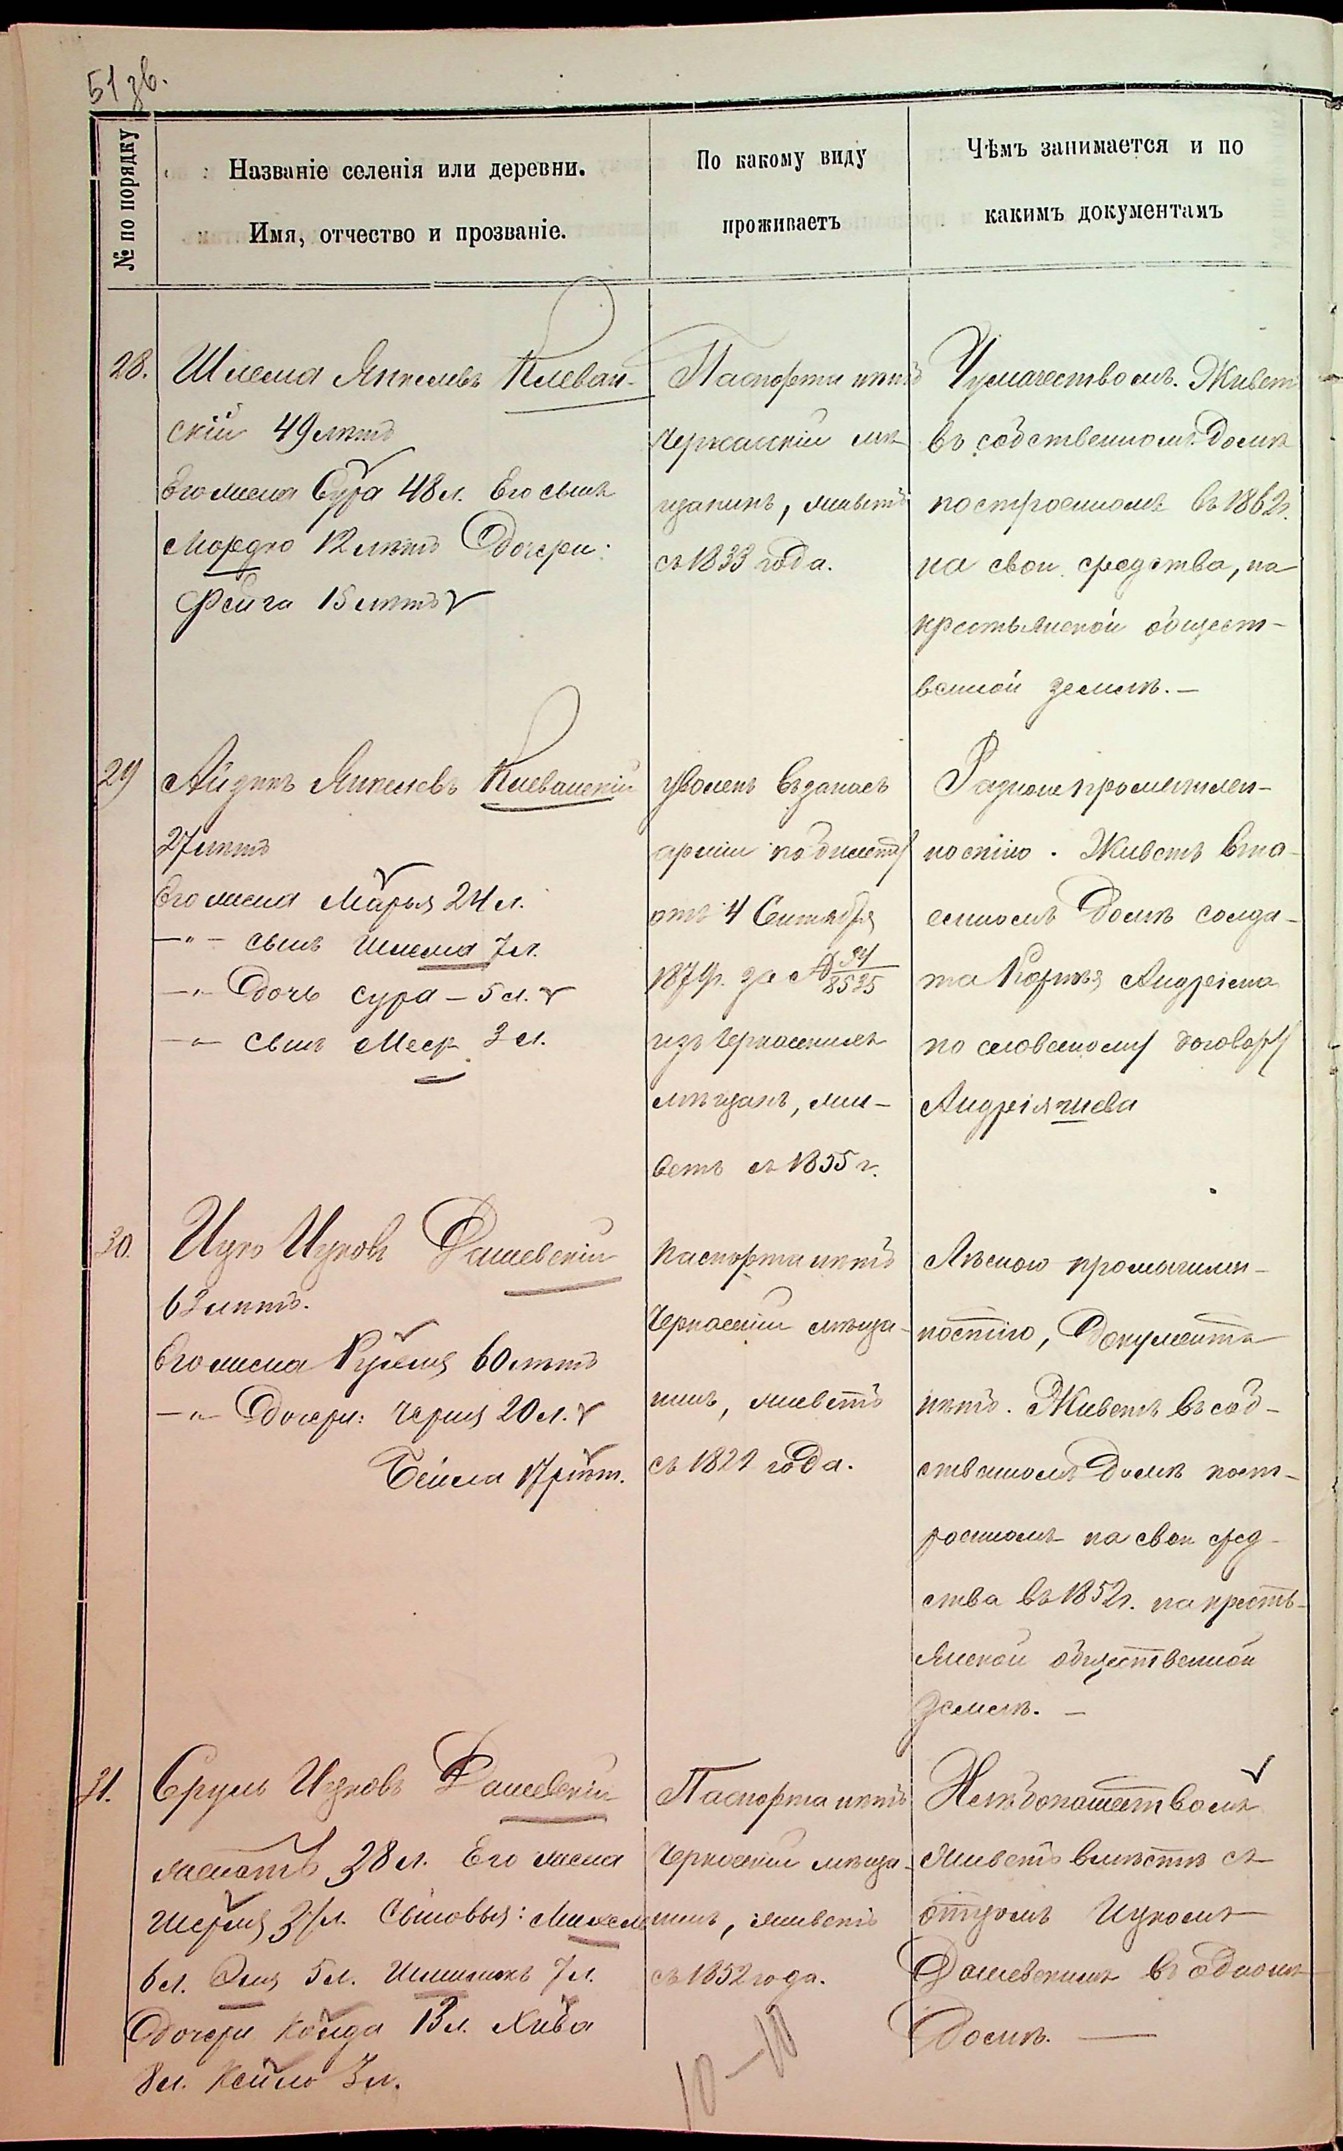 51 зв.
№ по порядку
Названіе селенія или деревни.
Имя, отчество и прозваніе.
По какому виду
проживаетъ
Чѣмъ занимается и по
какимъ документамъ
28.
Шлема Янкелевъ Клеван-
скій 49 лѣтъ
Его жена Сура 48 л. Его сынъ
Мордко 12 лѣтъ Дочери:
Фейга 15 лѣтъ
Паспорта нѣтъ
Черкасскій мѣ
щанинъ, живетъ
съ 1833 года.
Чумачествомъ. Живет
въ собственномъ домѣ
построенномъ въ 1862 г.
на свои средства, на
крестьянской общест-
венной землѣ. —
29
Айзикъ Янкелевъ Клеванскій
27 лѣтъ
Его жена Марья 24 л.
—„— сынъ Шлема 7 л.
—„— Дочь Сура — 5 л.
—„— сынъ Меер 3 л.
Уволенъ въ запасъ
арміи по билету
отъ 4 Сентября
187 г. за №
8535
изъ Черкасскихъ
мѣщанъ, жи-
ветъ съ 1855 г.
Разною промышлен-
ностію. Живетъ въ на-
емномъ домѣ солда-
та Корнѣя Андреіева
по словесному договору
Андріяшева
30.
Ицко Ицковъ Дашевскій
63 лѣтъ.
Его жена 60 лѣтъ
—„— Дочери: Черня 20 л.
Бейла 17 лѣт.
Паспорта нѣтъ
Черкасскій мѣща-
нинъ, живетъ
съ 1821 года.
Лѣсною промышлен-
ностію, Документа
нѣтъ. Живетъ въ соб-
ственномъ домѣ пост-
роенномъ на свои сред-
ства въ 1852 г. на кресть-
янской общественной
землѣ. —
31.
Сруль Ицковъ Дашевскій
38 л. Его жена
л. Сыновья:
6 л. 5 л. 7 л.
Дочери 13 л. Хива
8 л. Кейла 3 л.
Паспорта нѣтъ
Черкасскій мѣща-
нинъ, живетъ
съ 1852 года.
Хлѣбопашеством
Живетъ вмѣстѣ съ
отцомъ Ицкомъ
Дашевскимъ въ одномъ
Домѣ. —
10 — 10